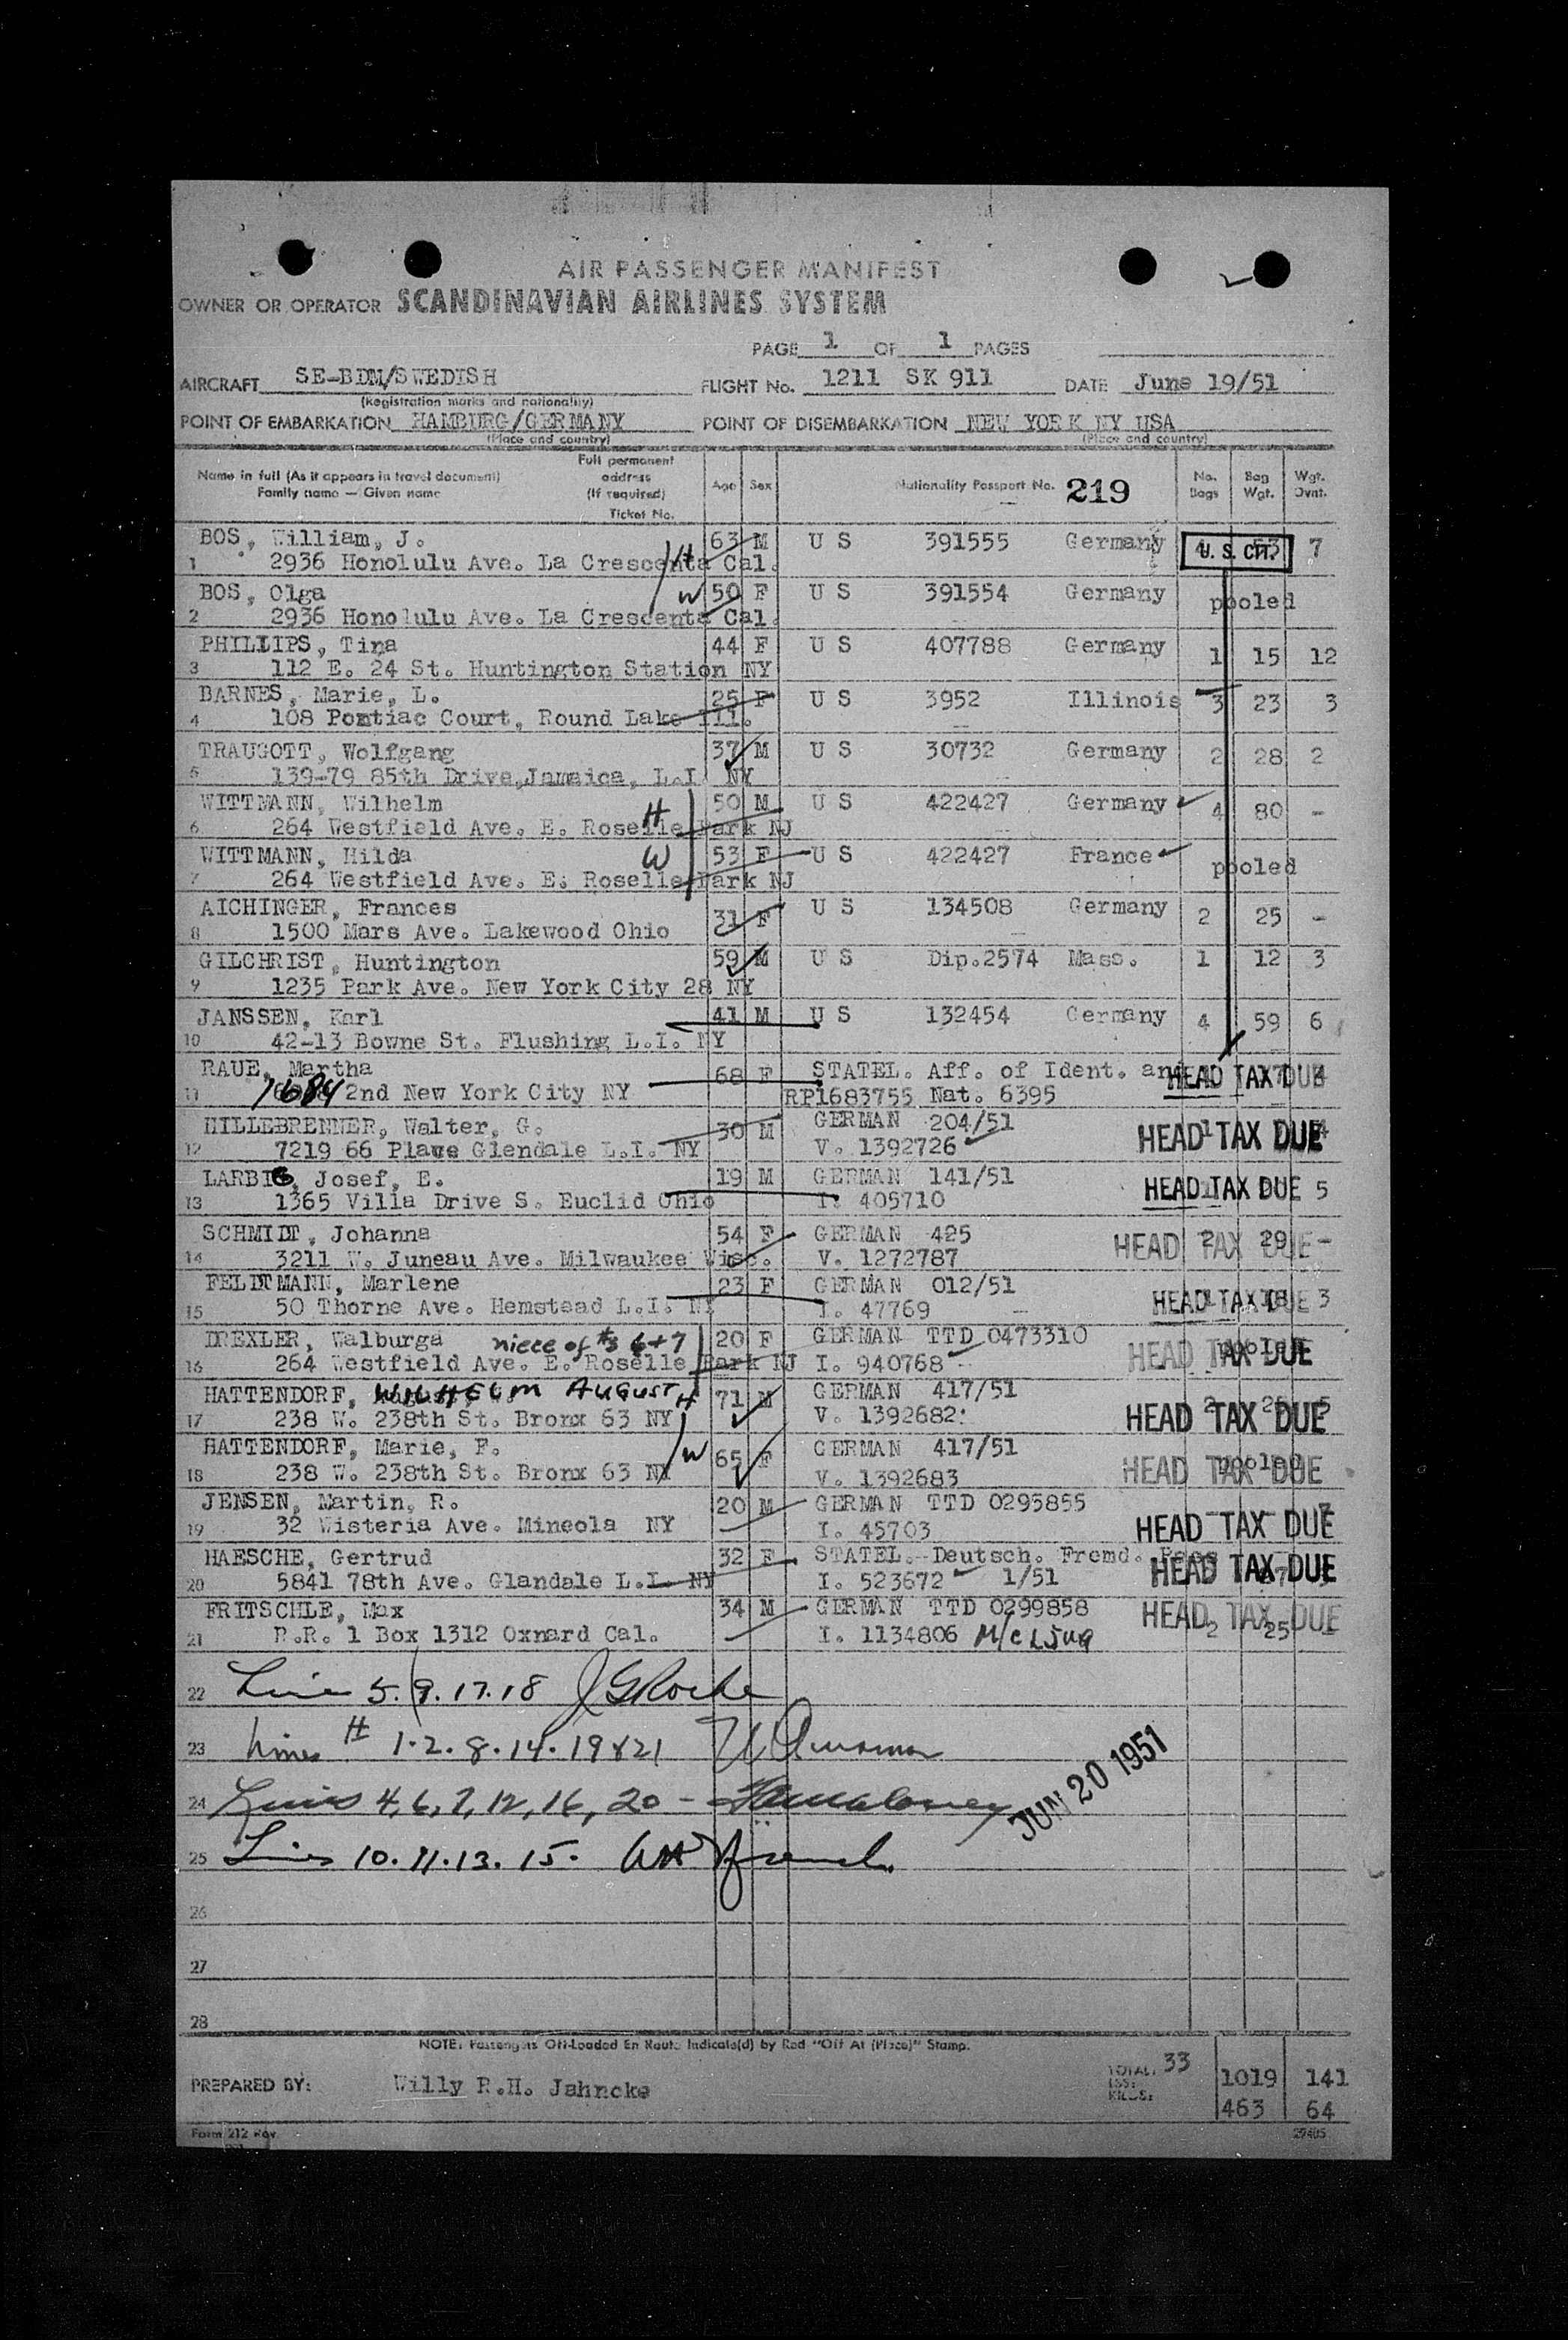 AIR PASSENGER MANIFEST
OWNER OR OPERATOR SCANDINAVIAN AIRLINES SYSTEM
PAGE 1 OF 1 PAGES
AIRCRAFT SE-BDM/SWEDISH FLIGHT No. 1211 SK 911 DATE June 19/51
(Registration marks and nationality)
POINT OF EMBARKATION HAMBURG/GERMANY POINT OF DISEMBARKATION NEW YORK NY USA
(Place and country) (Place and country)
Name in full (As it appears in travel document) Family name — Given name Full permanent address (If required) Ticket No. Age Sex Nationality Passport No. 219 No. Bags Bag Wgt. Wgt. Ovnt.
BOS, William, J. H 63 M U S 391555 Germany U. S. CIT. 7
1 2936 Honolulu Ave. La Crescenta Cal.
BOS, Olga W 50 F U S 391554 Germany pooled
2 2936 Honolulu Ave. La Crescenta Cal.
PHILLIPS, Tina 44 F U S 407788 Germany 1 15 12
3 112 E. 24 St. Huntington Station NY
BARNES, Marie, L. 25 F U S 3952 Illinois 3 23 3
4 108 Pontiac Court, Round Lake Ill.
TRAUGOTT, Wolfgang 37 M U S 30732 Germany 2 28 2
5 139-79 85th Drive, Jamaica, L.I. NY
WITTMANN, Wilhelm H 50 M U S 422427 Germany 4 80 -
6 264 Westfield Ave. E. Roselle Park NJ
WITTMANN, Hilda W 53 F U S 422427 France pooled
7 264 Westfield Ave. E. Roselle Park NJ
AICHINGER, Frances 31 F U S 134508 Germany 2 25 -
8 1500 Mars Ave. Lakewood Ohio
GILCHRIST, Huntington 59 M U S Dip.2574 Mass. 1 12 3
9 1235 Park Ave. New York City 28 NY
JANSSEN, Karl 41 M U S 132454 Germany 4 59 6
10 42-13 Bowne St. Flushing L.I. NY
RAUE, Martha 68 F STATEL. Aff. of Ident. and HEAD TAX DUE
11 1684 2nd New York City NY RP1683755 Nat. 6395
HILLEBRENNER, Walter, G. 30 M GERMAN 204/51 HEAD TAX DUE 4
12 7219 66 Place Glendale L.I. NY V. 1392726
LARBIG, Josef, E. 19 M GERMAN 141/51 HEAD TAX DUE 5
13 1365 Villa Drive S. Euclid Ohio I. 405710
SCHMIDT, Johanna 54 F GERMAN 425 HEAD TAX DUE 2 29 -
14 3211 W. Juneau Ave. Milwaukee Wisc. V. 1272787
FELDTMANN, Marlene 23 F GERMAN 012/51 HEAD TAX DUE 1 18 3
15 50 Thorne Ave. Hemstead L.I. NY I. 47769
DREXLER, Walburga niece of #s 6+7 20 F GERMAN TTD 0473310 HEAD TAX DUE pooled
16 264 Westfield Ave. E. Roselle Park NJ I. 940768
HATTENDORF, WILHELM AUGUST H 71 M GERMAN 417/51 HEAD TAX DUE 2 5
17 238 W. 238th St. Bronx 63 NY V. 1392682
HATTENDORF, Marie, F. W 65 F GERMAN 417/51 HEAD TAX DUE pooled
18 238 W. 238th St. Bronx 63 NY V. 1392683
JENSEN, Martin, R. 20 M GERMAN TTD 0295855 HEAD TAX DUE
19 32 Wisteria Ave. Mineola NY I. 45703
HAESCHE, Gertrud 32 F STATEL. Deutsch. Fremd. Pass HEAD TAX DUE
20 5841 78th Ave. Glandale L.I. NY I. 523672 1/51
FRITSCHLE, Max 34 M GERMAN TTD 0299858 HEAD TAX DUE 2 25
21 R.R. 1 Box 1312 Oxnard Cal. I. 1134806
22 Line 5.9.17.18 J G Roche
23 Lines # 1.2.8.14.19&21
24 Lines 4,6,7,12,16,20 - JUN 20 1951
25 Lines 10.11.13.15.
26
27
28
NOTE: Passengers Off-Loaded En Route Indicate(d) by Red "Off At (Place)" Stamp.
TOTAL: 33
LBS: 1019 141
PREPARED BY: Willy R.H. Jahncke
KILOS: 463 64
Form 212 Rev. 29405